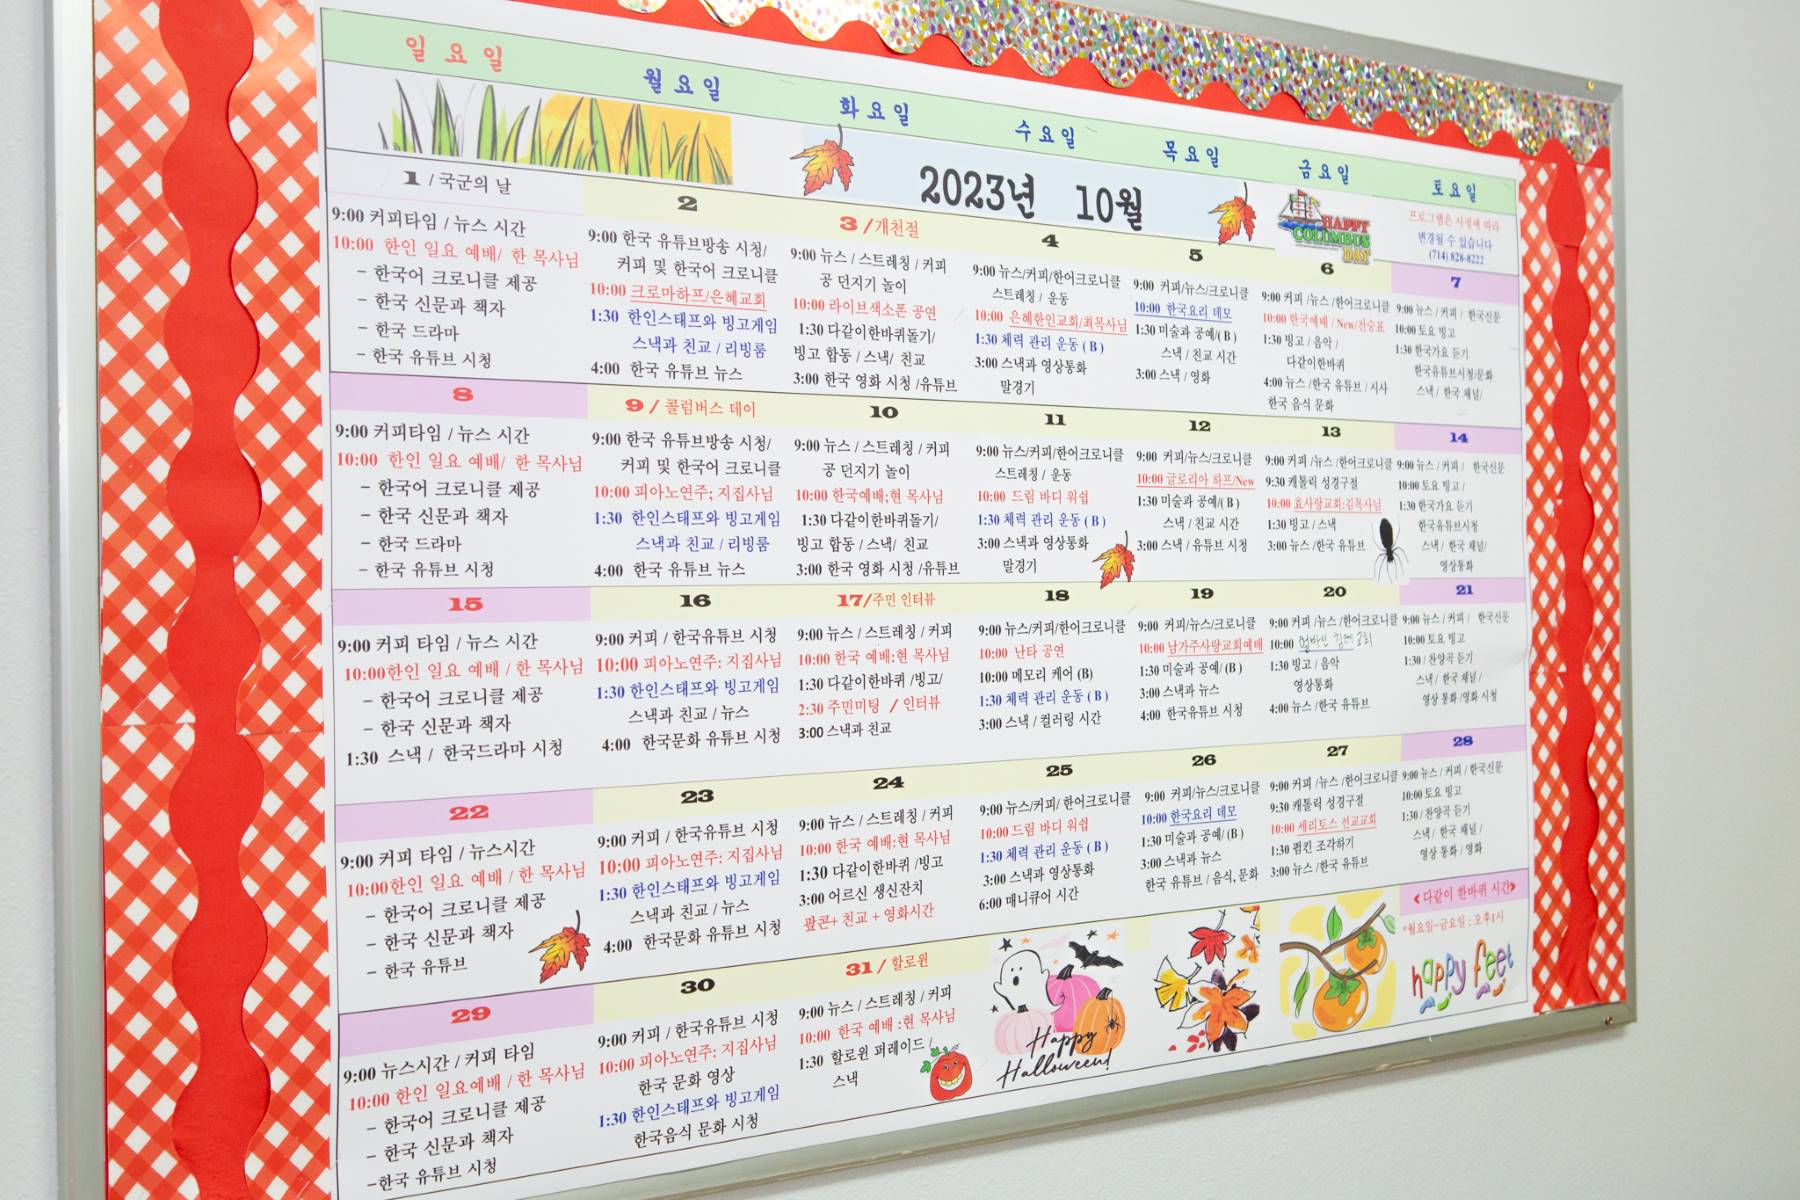 일요일 월요일 화요일 수요일 목요일 금요일 토요일
2023년 10월
HAPPY
COLUMBUS
DAY
프로그램은 사정에 따라
변경될 수 있습니다
(714) 828-8222
1 / 국군의 날
9:00 커피타임 / 뉴스 시간
10:00 한인 일요 예배/ 한 목사님
- 한국어 크로니클 제공
- 한국 신문과 책자
- 한국 드라마
- 한국 유튜브 시청
2
9:00 한국 유튜브방송 시청/
커피 및 한국어 크로니클
10:00 크로마하프/은혜교회
1:30 한인스태프와 빙고게임
스낵과 친교 / 리빙룸
4:00 한국 유튜브 뉴스
3 / 개천절
9:00 뉴스 / 스트레칭 / 커피
공 던지기 놀이
10:00 라이브색소폰 공연
1:30 다같이한바퀴돌기/
빙고 합동 / 스낵/ 친교
3:00 한국 영화 시청 /유튜브
4
9:00 뉴스/커피/한어크로니클
스트레칭 / 운동
10:00 은혜한인교회/최목사님
1:30 체력 관리 운동 ( B )
3:00 스낵과 영상통화
말경기
5
9:00 커피/뉴스/크로니클
10:00 한국요리 데모
1:30 미술과 공예/( B )
스낵 / 친교 시간
3:00 스낵 / 영화
6
9:00 커피 /뉴스 /한어크로니클
10:00 한국예배 / New/전승표
1:30 빙고 / 음악 /
다같이한바퀴
4:00 뉴스 /한국 유튜브 / 시사
한국 음식 문화
7
9:00 뉴스 / 커피 / 한국신문
10:00 토요 빙고
1:30 한국가요 듣기
한국유튜브시청/문화
스낵 / 한국 채널/
8
9:00 커피타임 / 뉴스 시간
10:00 한인 일요 예배/ 한 목사님
- 한국어 크로니클 제공
- 한국 신문과 책자
- 한국 드라마
- 한국 유튜브 시청
9 / 콜럼버스 데이
9:00 한국 유튜브방송 시청/
커피 및 한국어 크로니클
10:00 피아노연주; 지집사님
1:30 한인스태프와 빙고게임
스낵과 친교 / 리빙룸
4:00 한국 유튜브 뉴스
10
9:00 뉴스 / 스트레칭 / 커피
공 던지기 놀이
10:00 한국예배;현 목사님
1:30 다같이한바퀴돌기/
빙고 합동 / 스낵/ 친교
3:00 한국 영화 시청 /유튜브
11
9:00 뉴스/커피/한어크로니클
스트레칭 / 운동
10:00 드림 바디 워쉽
1:30 체력 관리 운동 ( B )
3:00 스낵과 영상통화
말경기
12
9:00 커피/뉴스/크로니클
10:00 글로리아 하프/New
1:30 미술과 공예/( B )
스낵 / 친교 시간
3:00 스낵 / 유튜브 시청
13
9:00 커피 /뉴스 /한어크로니클
9:30 캐톨릭 성경구절
10:00 효사랑교회:김목사님
1:30 빙고 / 스낵
3:00 뉴스 /한국 유튜브
14
9:00 뉴스 / 커피 / 한국신문
10:00 토요 빙고 /
1:30 한국가요 듣기
한국유튜브시청
스낵 / 한국 채널/
영상통화
15
9:00 커피 타임 / 뉴스 시간
10:00한인 일요 예배 / 한 목사님
- 한국어 크로니클 제공
- 한국 신문과 책자
1:30 스낵 / 한국드라마 시청
16
9:00 커피 / 한국유튜브 시청
10:00 피아노연주: 지집사님
1:30 한인스태프와 빙고게임
스낵과 친교 / 뉴스
4:00 한국문화 유튜브 시청
17/주민 인터뷰
9:00 뉴스 / 스트레칭 / 커피
10:00 한국 예배:현 목사님
1:30 다같이한바퀴 /빙고/
2:30 주민미팅 / 인터뷰
3:00 스낵과 친교
18
9:00 뉴스/커피/한어크로니클
10:00 난타 공연
10:00 메모리 케어 (B)
1:30 체력 관리 운동 ( B )
3:00 스낵 / 컬러링 시간
19
9:00 커피/뉴스/크로니클
10:00 남가주사랑교회예배
1:30 미술과 공예/ (B )
3:00 스낵과 뉴스
4:00 한국유튜브 시청
20
9:00 커피 /뉴스 /한어크로니클
10:00
1:30 빙고 / 음악
영상통화
4:00 뉴스 /한국 유튜브
21
9:00 뉴스 / 커피 / 한국신문
10:00 토요 빙고
1:30 / 찬양곡 듣기
스낵 / 한국 채널 /
영상 통화 /영화 시청
22
9:00 커피 타임 / 뉴스시간
10:00한인 일요 예배 / 한 목사님
- 한국어 크로니클 제공
- 한국 신문과 책자
- 한국 유튜브
23
9:00 커피 / 한국유튜브 시청
10:00 피아노연주: 지집사님
1:30 한인스태프와 빙고게임
스낵과 친교 / 뉴스
4:00 한국문화 유튜브 시청
24
9:00 뉴스 / 스트레칭 / 커피
10:00 한국 예배:현 목사님
1:30 다같이한바퀴 /빙고
3:00 어르신 생신잔치
팝콘+ 친교 + 영화시간
25
9:00 뉴스/커피/ 한어크로니클
10:00 드림 바디 워쉽
1:30 체력 관리 운동 ( B )
3:00 스낵과 영상통화
6:00 매니큐어 시간
26
9:00 커피/뉴스/크로니클
10:00 한국요리 데모
1:30 미술과 공예/ (B )
3:00 스낵과 뉴스
한국 유튜브 / 음식, 문화
27
9:00 커피 /뉴스 /한어크로니클
9:30 캐톨릭 성경구절
10:00 세리토스 선교교회
1:30 펌킨 조각하기
3:00 뉴스 /한국 유튜브
28
9:00 뉴스 / 커피 / 한국신문
10:00 토요 빙고
1:30 / 찬양곡 듣기
스낵 / 한국 채널 /
영상 통화 / 영화
29
9:00 뉴스시간 / 커피 타임
10:00 한인 일요예배 / 한 목사님
- 한국어 크로니클 제공
- 한국 신문과 책자
-한국 유튜브 시청
30
9:00 커피 / 한국유튜브 시청
10:00 피아노연주: 지집사님
한국 문화 영상
1:30 한인스태프와 빙고게임
한국음식 문화 시청
31 / 할로윈
9:00 뉴스 / 스트레칭 / 커피
10:00 한국 예배 :현 목사님
1:30 할로윈 퍼레이드 /
스낵
Happy
Halloween!
< 다같이 한바퀴 시간>
*월요일-금요일 : 오후1시
happy feet